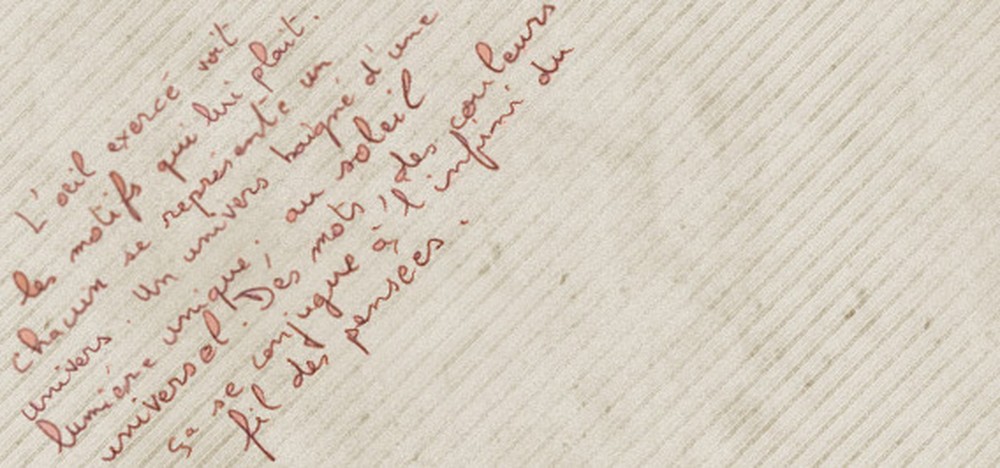 L'œil exercé voit
les motifs qui lui plait.
Chacun se représente un
univers. Un univers baigné d'une
lumière unique, au soleil
universel. Des mots, des couleurs
ça se conjugue à l'infini du
fil des pensées.